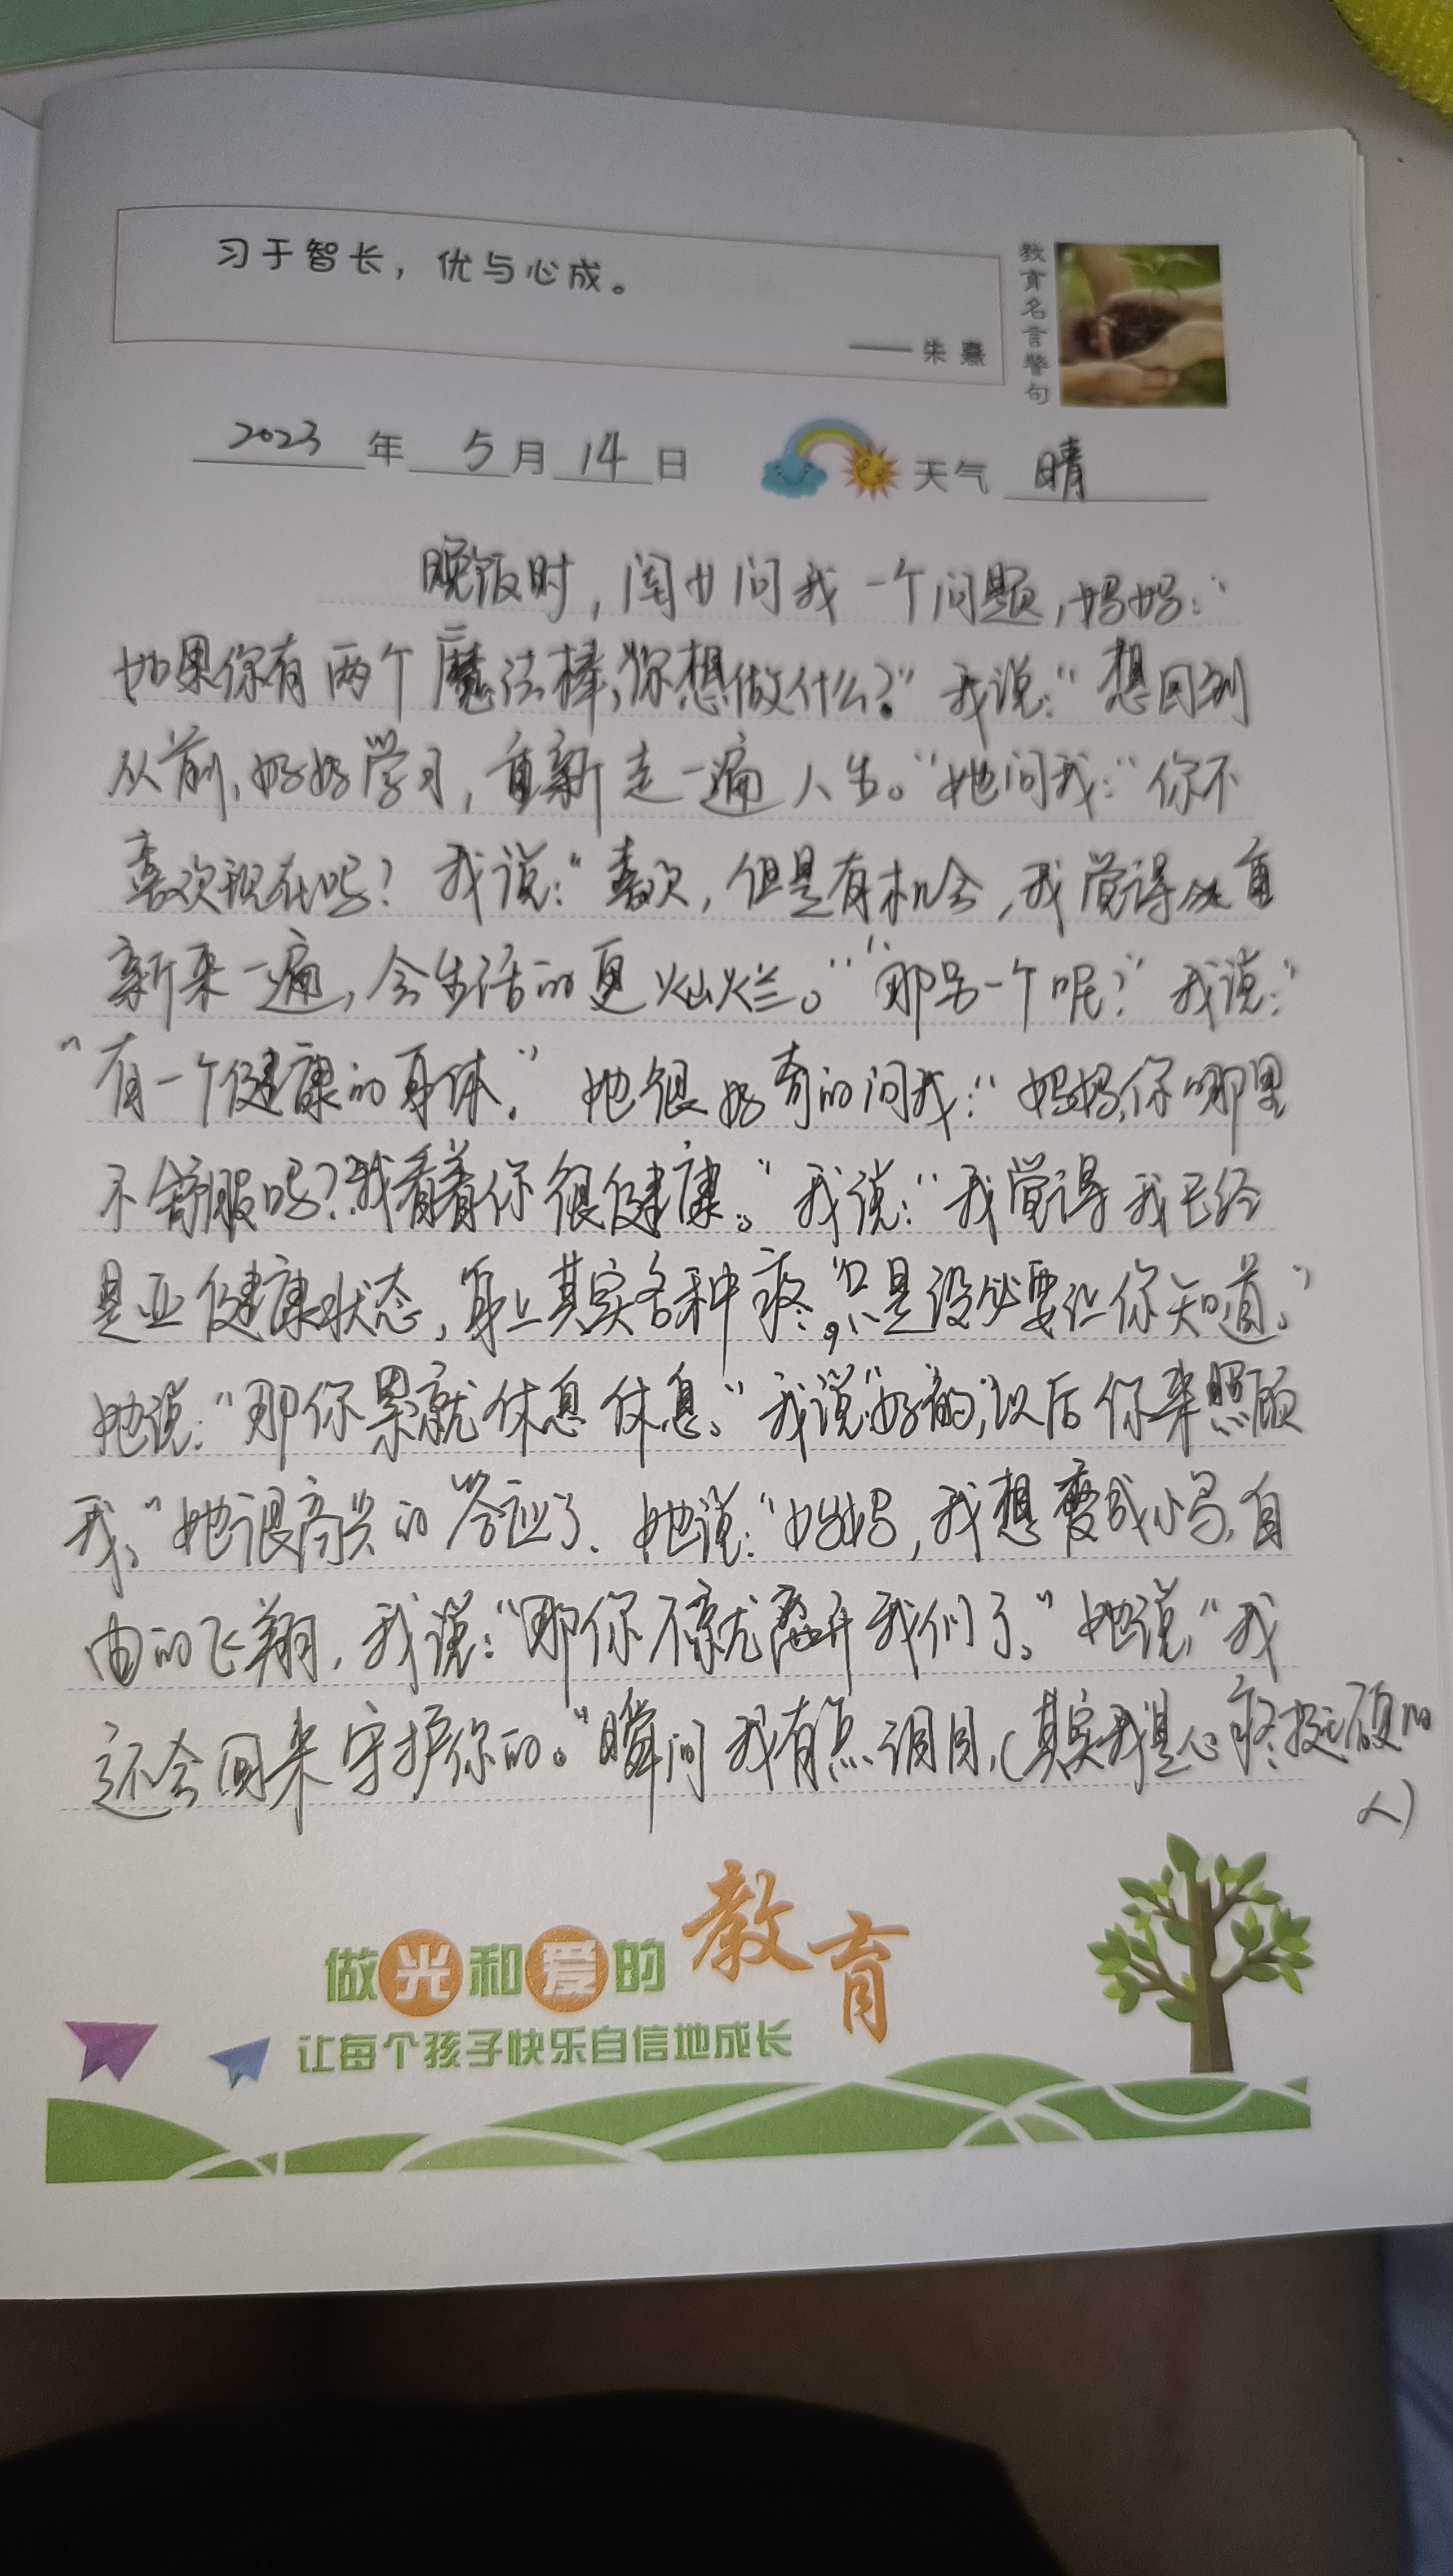 习于智长，优与心成。
——朱熹
教育名言警句
2023年5月14日 天气 晴
晚饭时，闺女问我一个问题，妈妈：“
如果你有两个魔法棒，你想做什么？”我说：“想回到
从前，好好学习，重新走一遍人生。“她问我：“你不
喜欢现在吗？我说：“喜欢，但是有机会，我觉得从重
新来一遍，会生活的更灿烂。”“那另一个呢？”我说：”
“有一个健康的身体。”她很好奇的问我：“妈妈，你哪里
不舒服吗？我看着你很健康。”我说：“我觉得我已经
是亚健康状态，身上其实各种疼，只是没必要让你知道。”
她说：“那你累就休息休息。”我说“好的，以后你来照顾
我。”她很高兴的答应了。她说：“妈妈，我想变成小鸟，自
由的飞翔，我说：“那你不就离开我们了。”她说，“我
还会回来守护你的。“瞬间我有点泪目，（其实我是心疼挺硬的
人）
做光和爱的教育
让每个孩子快乐自信地成长